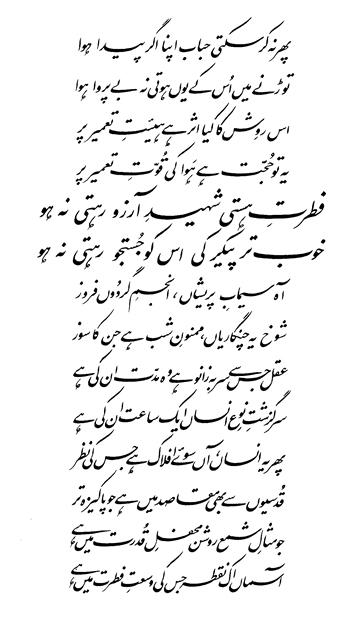 پھر نہ کر سکتی حباب اپنا اگر پیدا ہوا
توڑنے میں اُس کے یوں ہوتی نہ بے پروا ہوا
اس روش کا کیا اثر ہے ہیئتِ تعمیر پر
یہ تو حُجّت ہے ہَوا کی قُوّتِ تعمیر پر
فطرتِ ہستی شہیدِ آرزو رہتی نہ ہو
خوب تر پیکر کی اس کو جُستجو رہتی نہ ہو
آہ سیمابِ پریشاں، انجمِ گردُوں فروز
شوخ یہ چنگاریاں، ممنونِ شب ہے جن کا سوز
عقل جس سے سر بہ زانو ہے وہ مدّت ان کی ہے
سرگزشتِ نوعِ انساں ایک ساعت ان کی ہے
پھر یہ انساں، آں سوئے افلاک ہے جس کی نظر
قُدسیوں سے بھی مقاصد میں ہے جو پاکیزہ تر
جو مثالِ شمع روشن محفلِ قُدرت میں ہے
آسماں اک نقطہ جس کی وسعتِ فطرت میں ہے